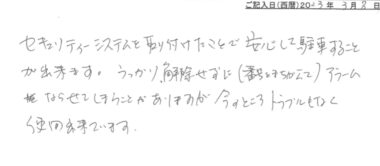 ご記入日(西暦)2023年3月8日
セキュリティーシステムを取り付けたことで安心して駐車すること
が出来ます。うっかり解除せずに(番号まちがえて)アラーム
ならせてしまうことがありますが今のところトラブルもなく
使用出来ています。